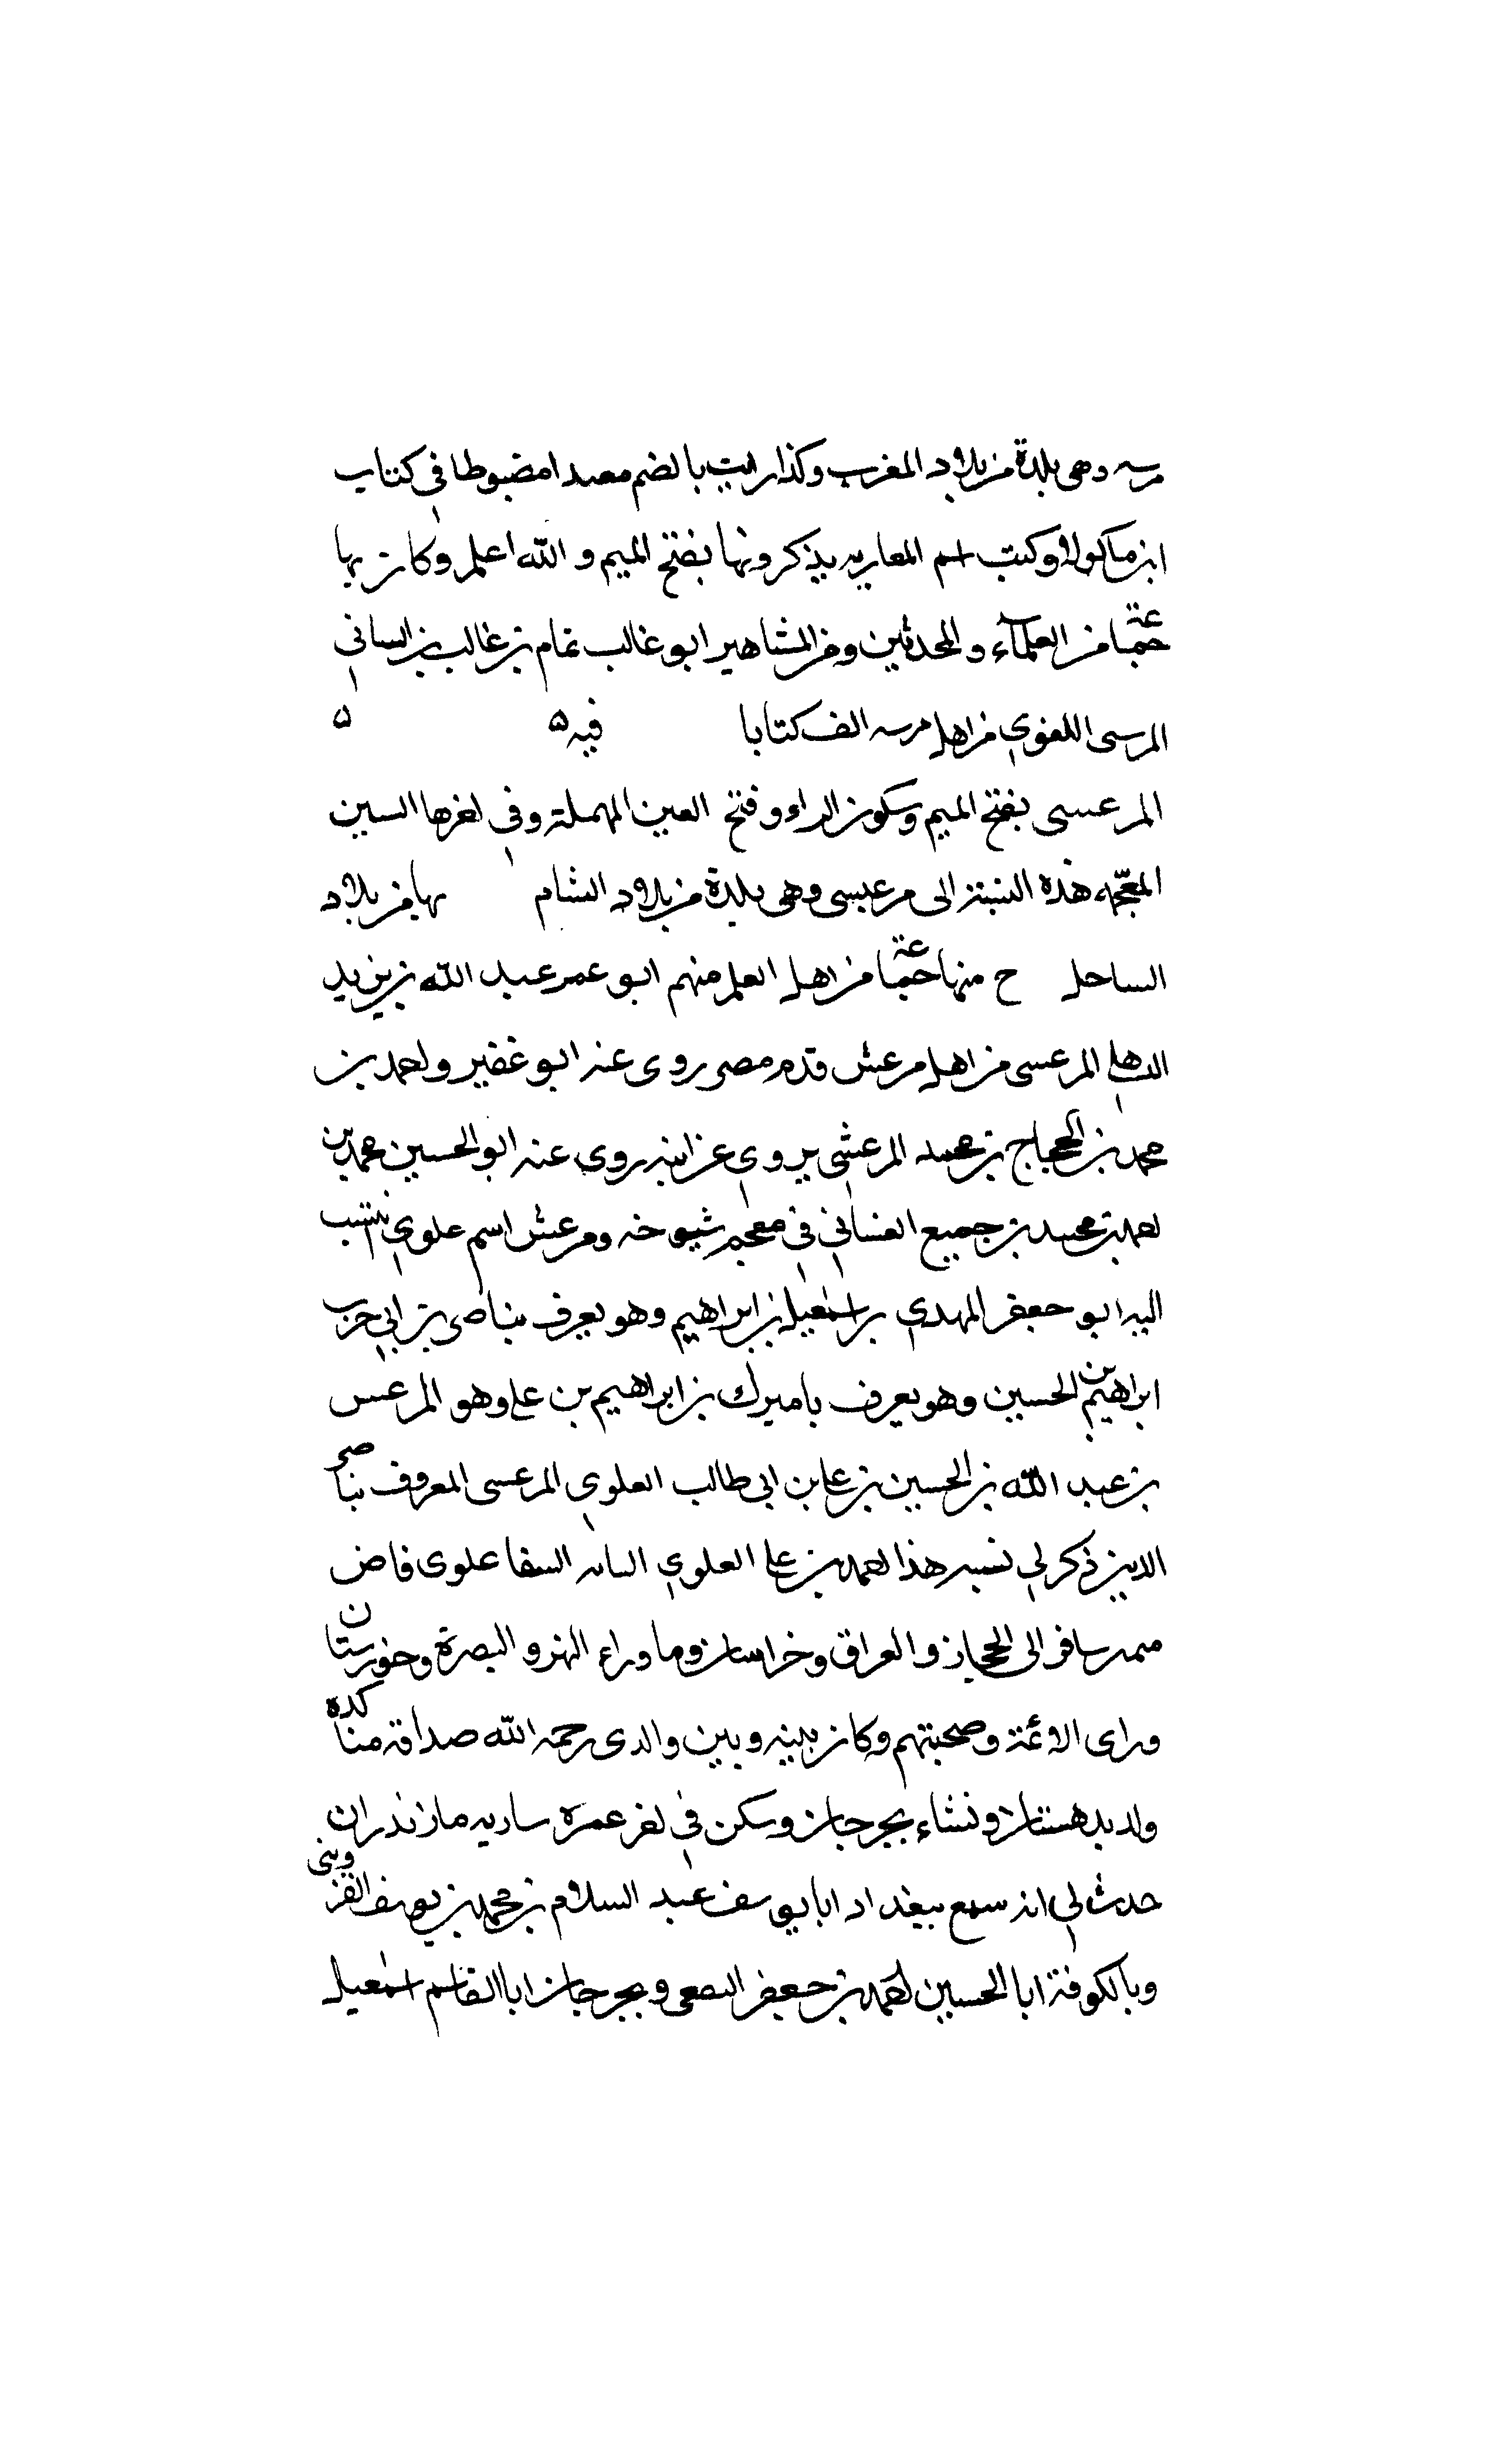 مرسه وهى بلدة من بلاد المغرب وكذا رايت بالضم مقيدا مضبوطا فى كتاب
ابن ماكولا وكنت اسمع المغاربه يذكرونها بفتح الميم والله اعلم وكان بها
جماعة من العلماء والمحدثين ومن المشاهير ابو غالب تمام بن غالب بن البانى
المرسى اللغوي من اهل مرسه الف كتابا فيه ه ه
المرعسى بفتح الميم وسكون الراء وفتح العين المهملة وفى اخرها السين
المعجمه هذه النسبة الى مرعس وهى بلدة من بلاد الشام بها من بلاد
الساحل ح منها جماعة من اهل العلم منهم ابو عمر عبد الله بن يزيد
المرعسى من اهل مرعش قدم مصر روى عنه ابو غفير واحمد بن
محمد بن الحجاج بن محمد المرعشى يروي عن ابيه روى عنه ابو الحسين محمد بن
احمد بن محمد بن جميع الغسانى فى معجم شيوخه ومرعش اسم علوي ينتسب
اليه ابو جعفر المهدي بن اسمعيل بن ابراهيم وهو يعرف بناصر بن ابى حرب
ابراهيم بن الحسين وهو يعرف باميرك بن ابراهيم بن على وهو المرعس
بن عبد الله بن الحسين بن على بن ابى طالب العلوي المرعسى المعروف بناصر
الدين ذكر لى نسبه هذا احمد بن على العلوي السقا علوى فاض
ممىر سافر الى الحجاز والعراق وخراسان وما وراء النهر والبصرة وخوزستان
وراى الائمة وصحبتهم وكان بينه وبين والدى رحمه الله صداقة متاكدة
ولد بدهستان ونشاء بجرجان وسكن فى اخر عمره ساريه مازندران
حدث لى انه سمع ببغداد ابا يوسف عبد السلام بن محمد بن يوسف القزوينى
وبالكوفة ابا الحسين احمد بن جعفر وبجرجان ابا القاسم اسمعيل